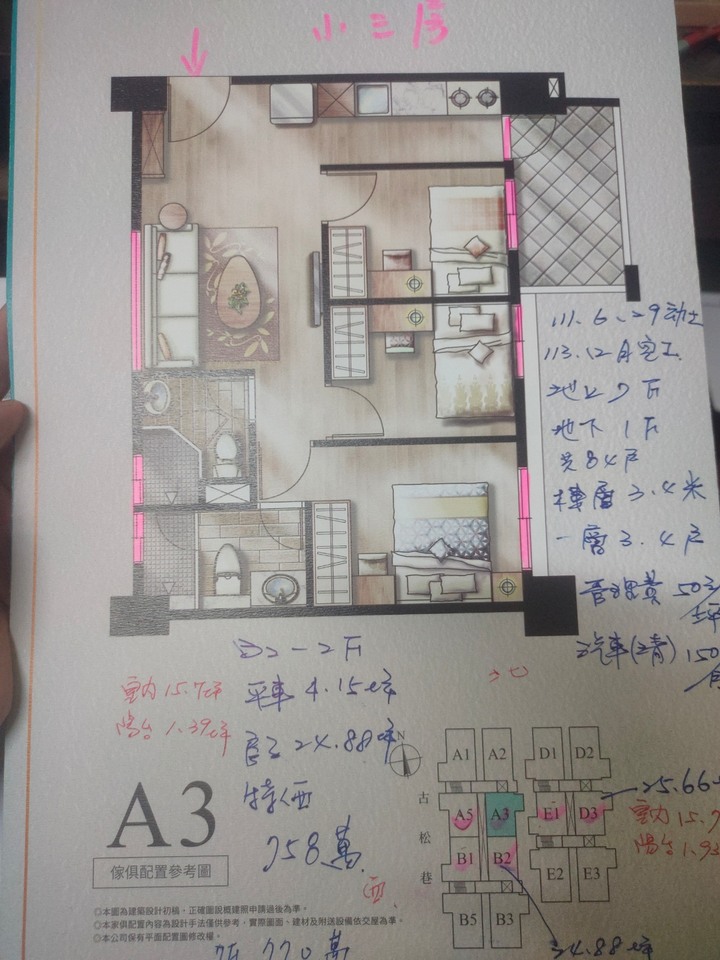 小三房
111.6.29動土
113.12月完工
地上7F
地下1F
共84戶
樓層3.4米
一層3.4戶
管理費 50元/坪
汽車(清) 150
B2-2F
室內15.7坪
平車 4.15坪
陽台 1.39坪
房子 24.88坪
特価
758萬
A3
傢俱配置參考圖
◎本圖為建築設計初稿,正確圖說概建照申請過後為準。
◎本傢俱配置內容為設計手法僅供參考,實際圖面、建材及附送設備依交屋為準。
◎本公司保有平面配置圖修改權。
770萬
N
古松巷
A1 A2 D1 D2
A5 A3 E1 D3
B1 B2 E2 E3
B5 B3
25.66
室內 15.7
陽台 1.93
24.88坪